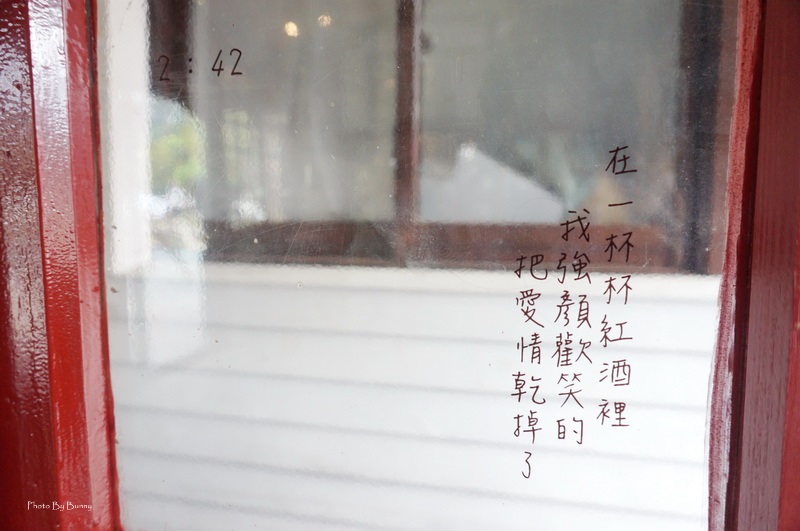 2：42
在一杯杯紅酒裡
我強顏歡笑的
把愛情乾掉了
Photo By Bunny